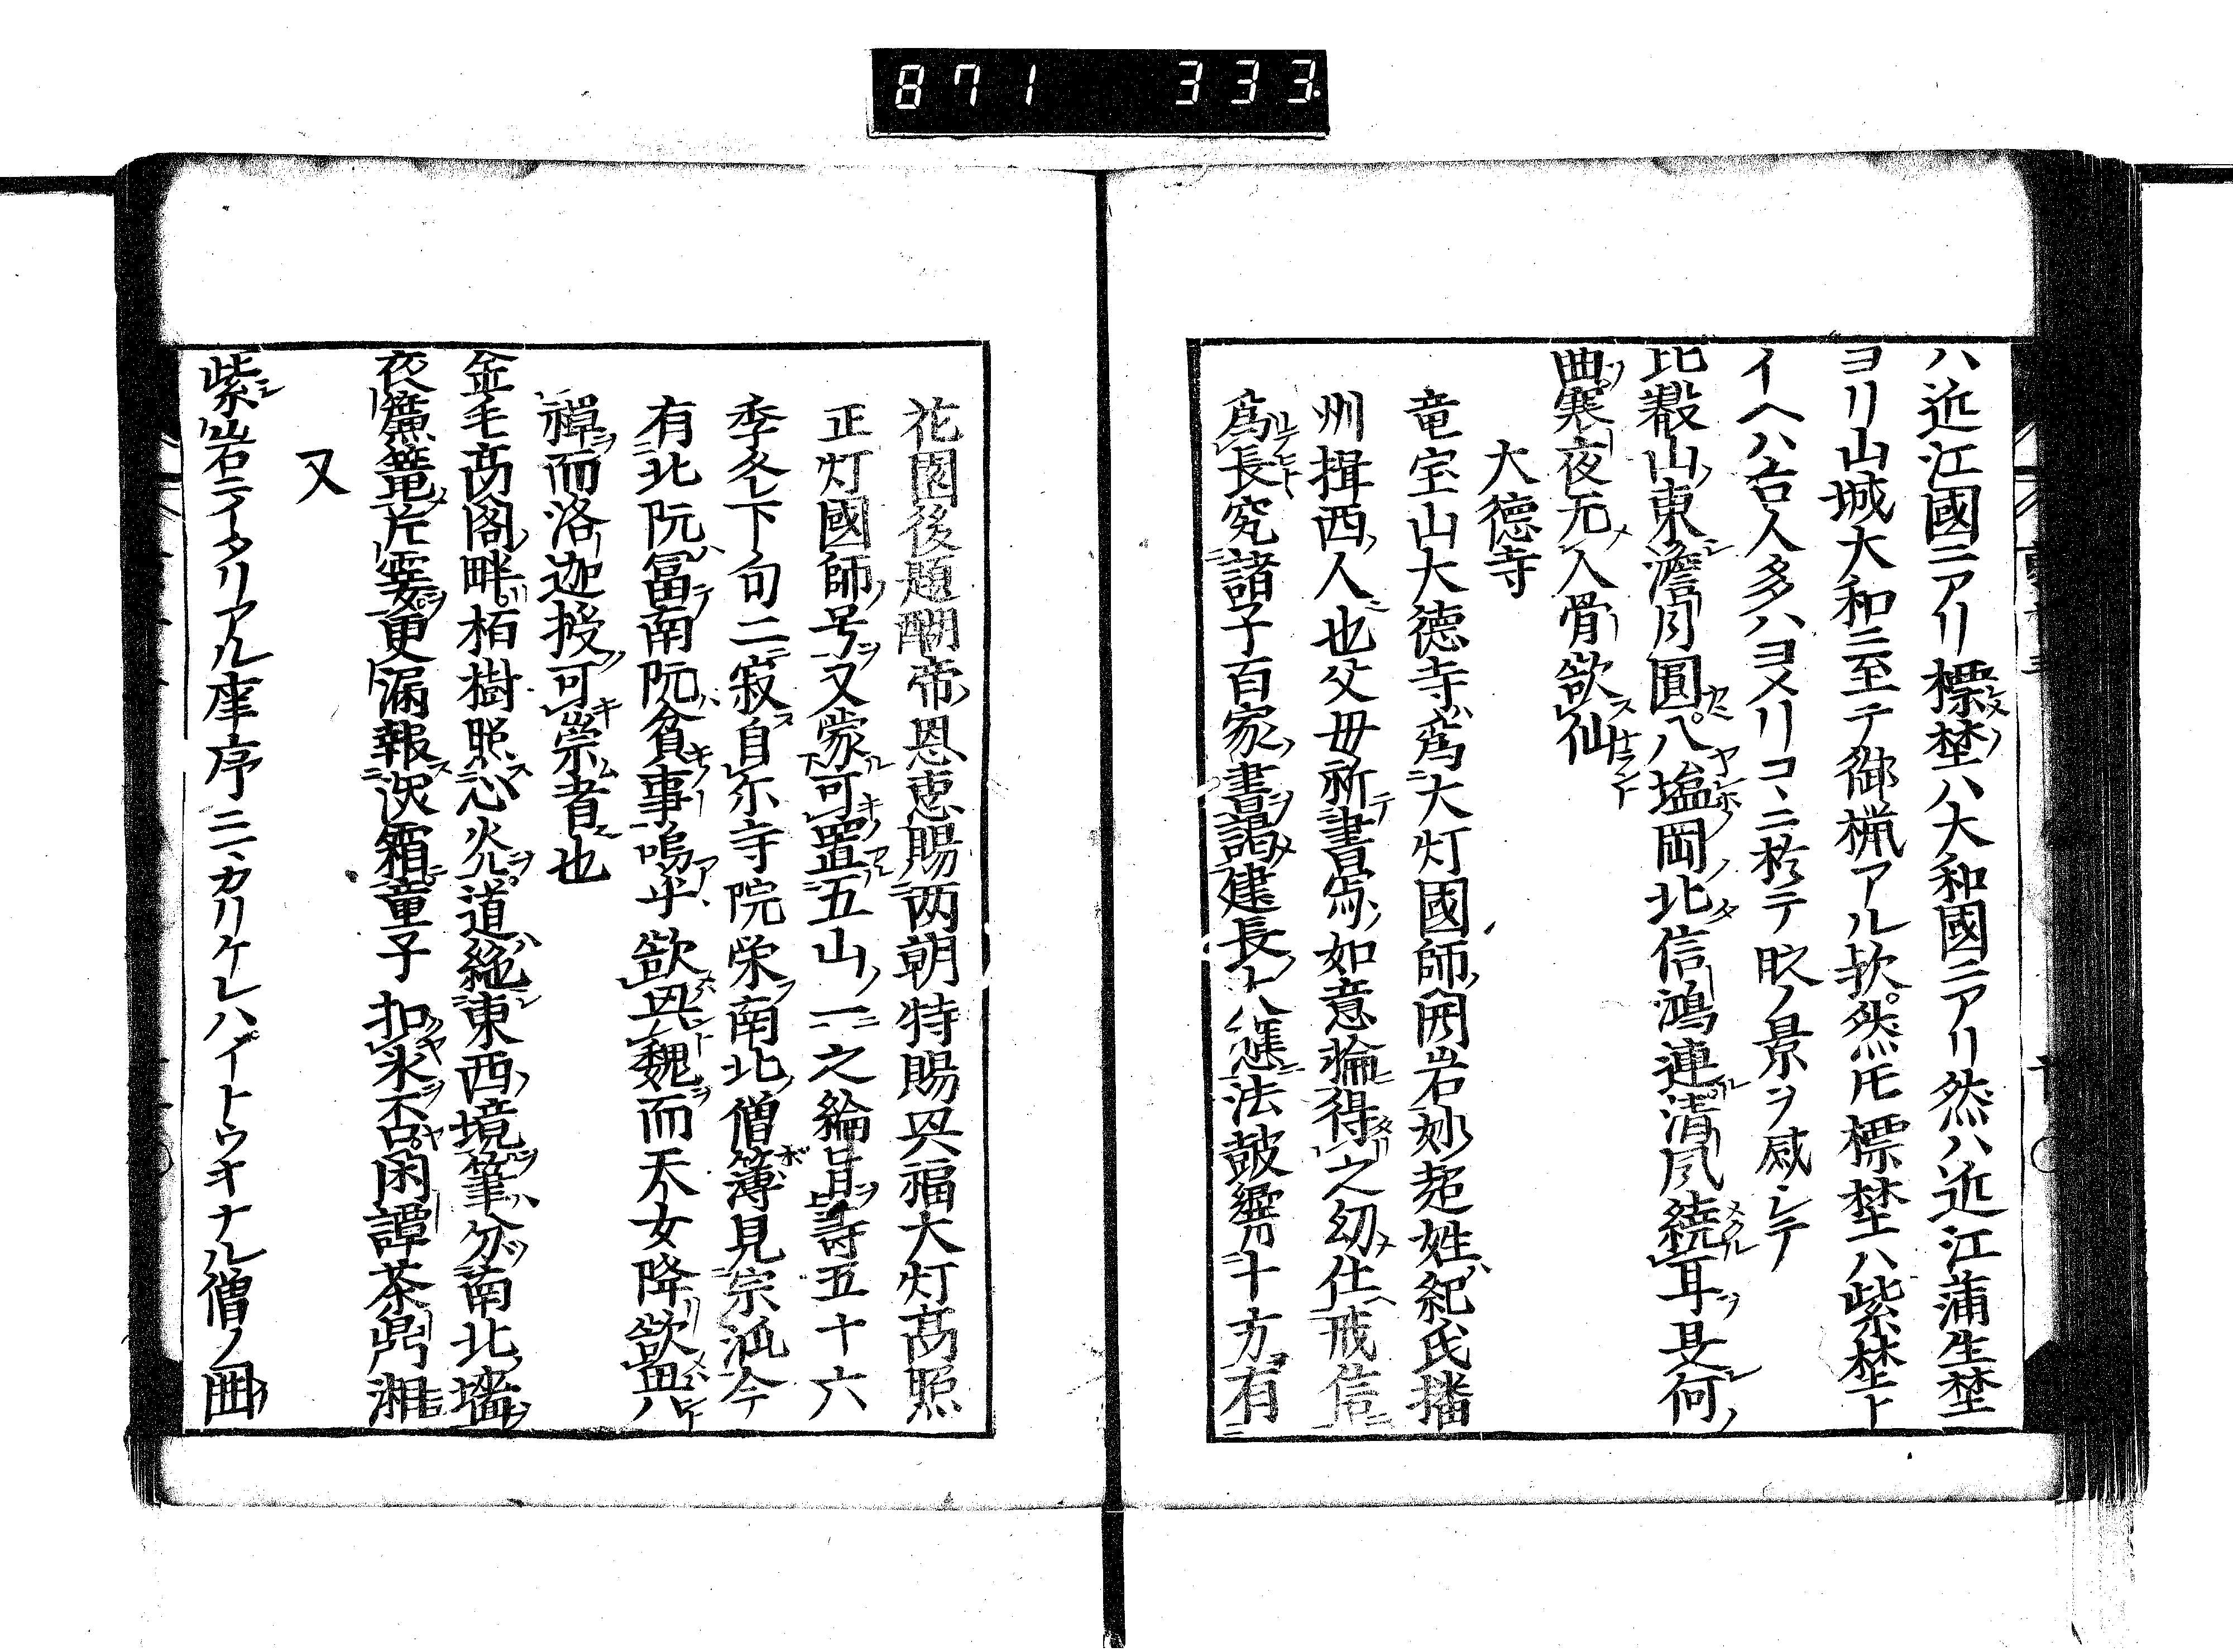 871 333.
ハ近江國ニアリ標埜ハ大和國ニアリ然ハ近江蒲生埜
ヨリ山城大和ニ至テ御猟アル歟然𪜈標埜ハ紫埜ト
イヘハ古人多ハヨメリコヽニ於テ眺ノ景ヲ感シテ
比叡山東澹月圓八塩岡北信鴻連清風繞耳是何
曲寒夜无人骨欲仙
大德寺
竜宝山大德寺爲大灯國師開岩妙超姓紀氏播
州揖西人也父毋祈書寫如意輪得之幼仕戒信
爲長究諸子百家書謁建長
法皷響十方有
花園後醍醐帝恩惠賜两朝特賜興福大灯高照
正灯國師号又蒙可置五山一之綸旨壽五十六
季冬下旬二寂自尓寺院栄南北僧簿見宗派今
有北阮冨南阮貧事嗚乎欲興魏而天女降欲興
禪而洛迦授可崇者也
金毛高阁畔栢樹照心炎道絶東西境筆分南北墻
夜簾篭片雲更漏報淡霜童子扣氷否閑譚茶鼎湘
又
紫岩ニイタリアル庠序ニヽカリケレハイトウキナル僧ノ曲